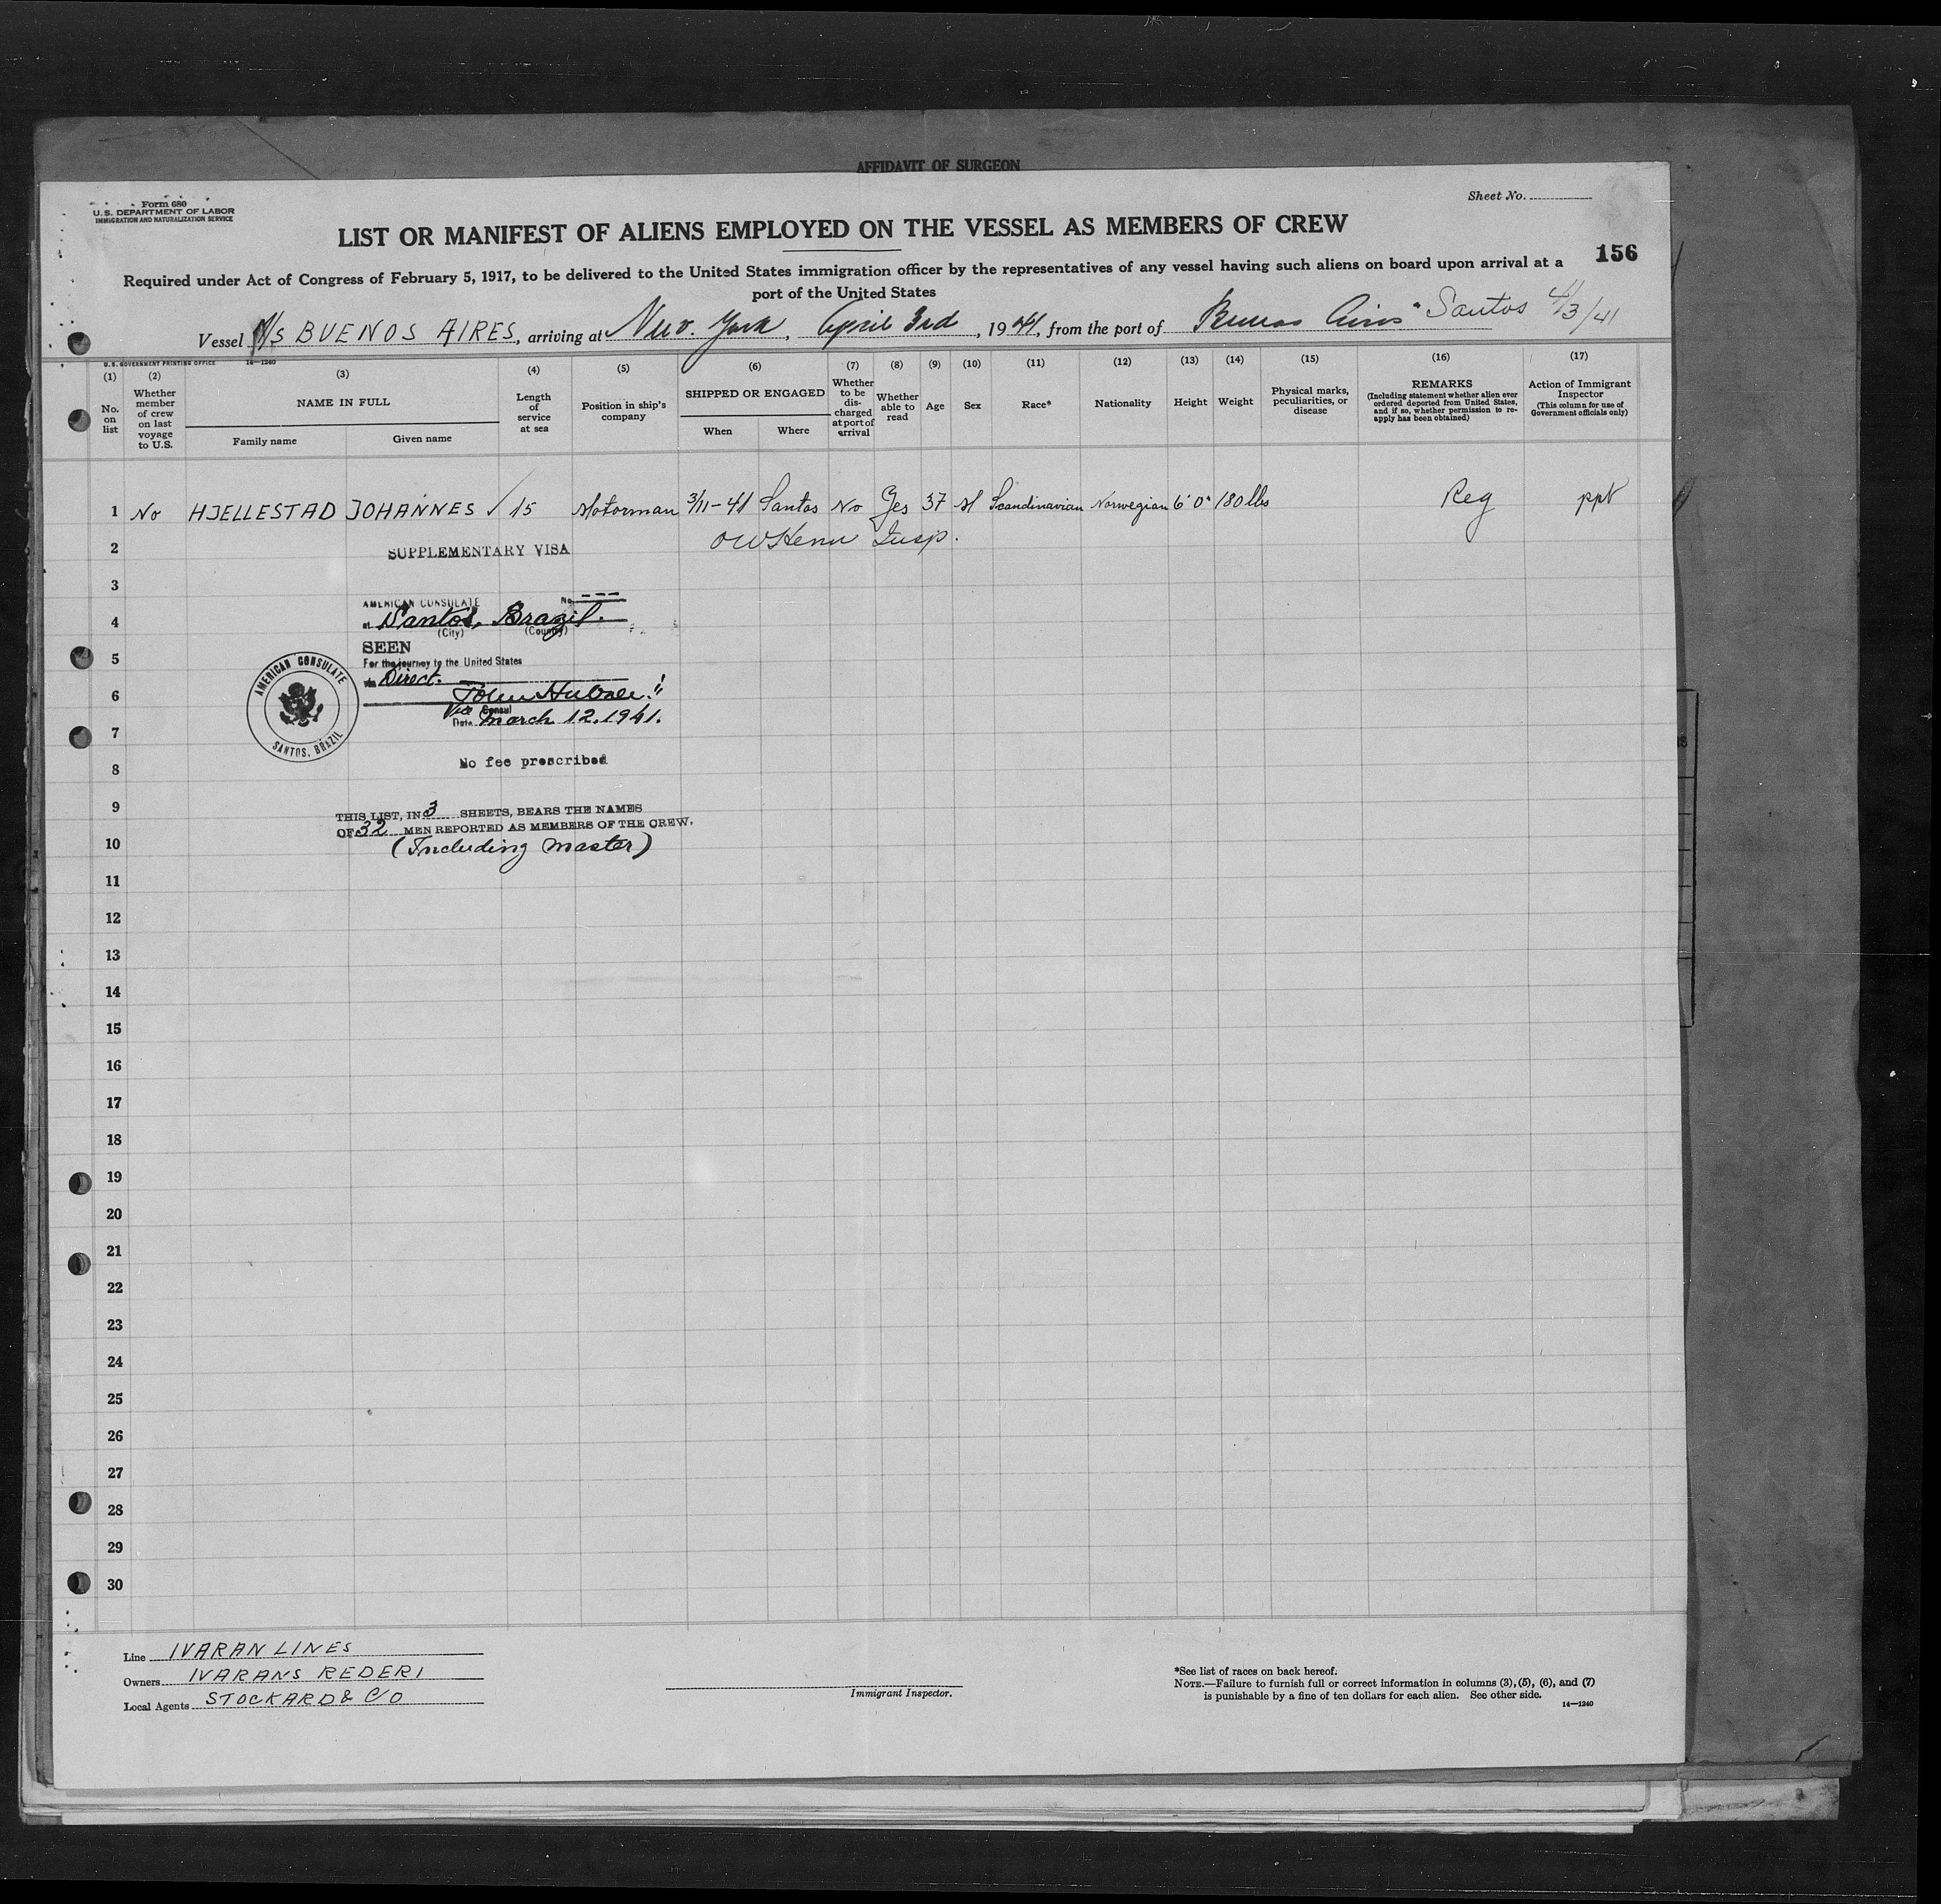 AFFIDAVIT OF SURGEON
Form 680
U.S. DEPARTMENT OF LABOR
IMMIGRATION AND NATURALIZATION SERVICE
Sheet No.
LIST OR MANIFEST OF ALIENS EMPLOYED ON THE VESSEL AS MEMBERS OF CREW
156
Required under Act of Congress of February 5, 1917, to be delivered to the United States immigration officer by the representatives of any vessel having such aliens on board upon arrival at a
port of the United States
Vessel M/S BUENOS AIRES, arriving at New York, April 3rd, 1941, from the port of Buenos Aires Santos 4/3/41
U.S. GOVERNMENT PRINTING OFFICE 14—1240
(1) No. on list
(2) Whether member of crew on last voyage to U.S.
(3) NAME IN FULL
Family name Given name
(4) Length of service at sea
(5) Position in ship's company
(6) SHIPPED OR ENGAGED
When Where
(7) Whether to be discharged at port of arrival
(8) Whether able to read
(9) Age
(10) Sex
(11) Race*
(12) Nationality
(13) Height
(14) Weight
(15) Physical marks, peculiarities, or disease
(16) REMARKS
(Including statement whether alien ever ordered deported from United States, and if so, whether permission to re-apply has been obtained)
(17) Action of Immigrant Inspector
(This column for use of Government officials only)
1 No HJELLESTAD JOHANNES ✓ 15 Motorman 3/11-41 Santos No Yes 37 M Scandinavian Norwegian 6'0" 180 lbs Reg ppt
2 SUPPLEMENTARY VISA Insp.
3
AMERICAN CONSULATE No. ---
4 at Santos, Brazil.
(City) (Country)
5 SEEN
For the journey to the United States
via Direct.
6
AMERICAN CONSULATE
SANTOS, BRAZIL
Vice Consul
7 Date March 12, 1941.
8 No fee prescribed
9 THIS LIST, IN 3 SHEETS, BEARS THE NAMES
OF 32 MEN REPORTED AS MEMBERS OF THE CREW.
10 (Including master)
11
12
13
14
15
16
17
18
19
20
21
22
23
24
25
26
27
28
29
30
Line IVARAN LINES
Owners IVARANS REDERI
Local Agents STOCKARD & CO
Immigrant Inspector.
*See list of races on back hereof.
NOTE.—Failure to furnish full or correct information in columns (3), (5), (6), and (7)
is punishable by a fine of ten dollars for each alien. See other side.
14—1240